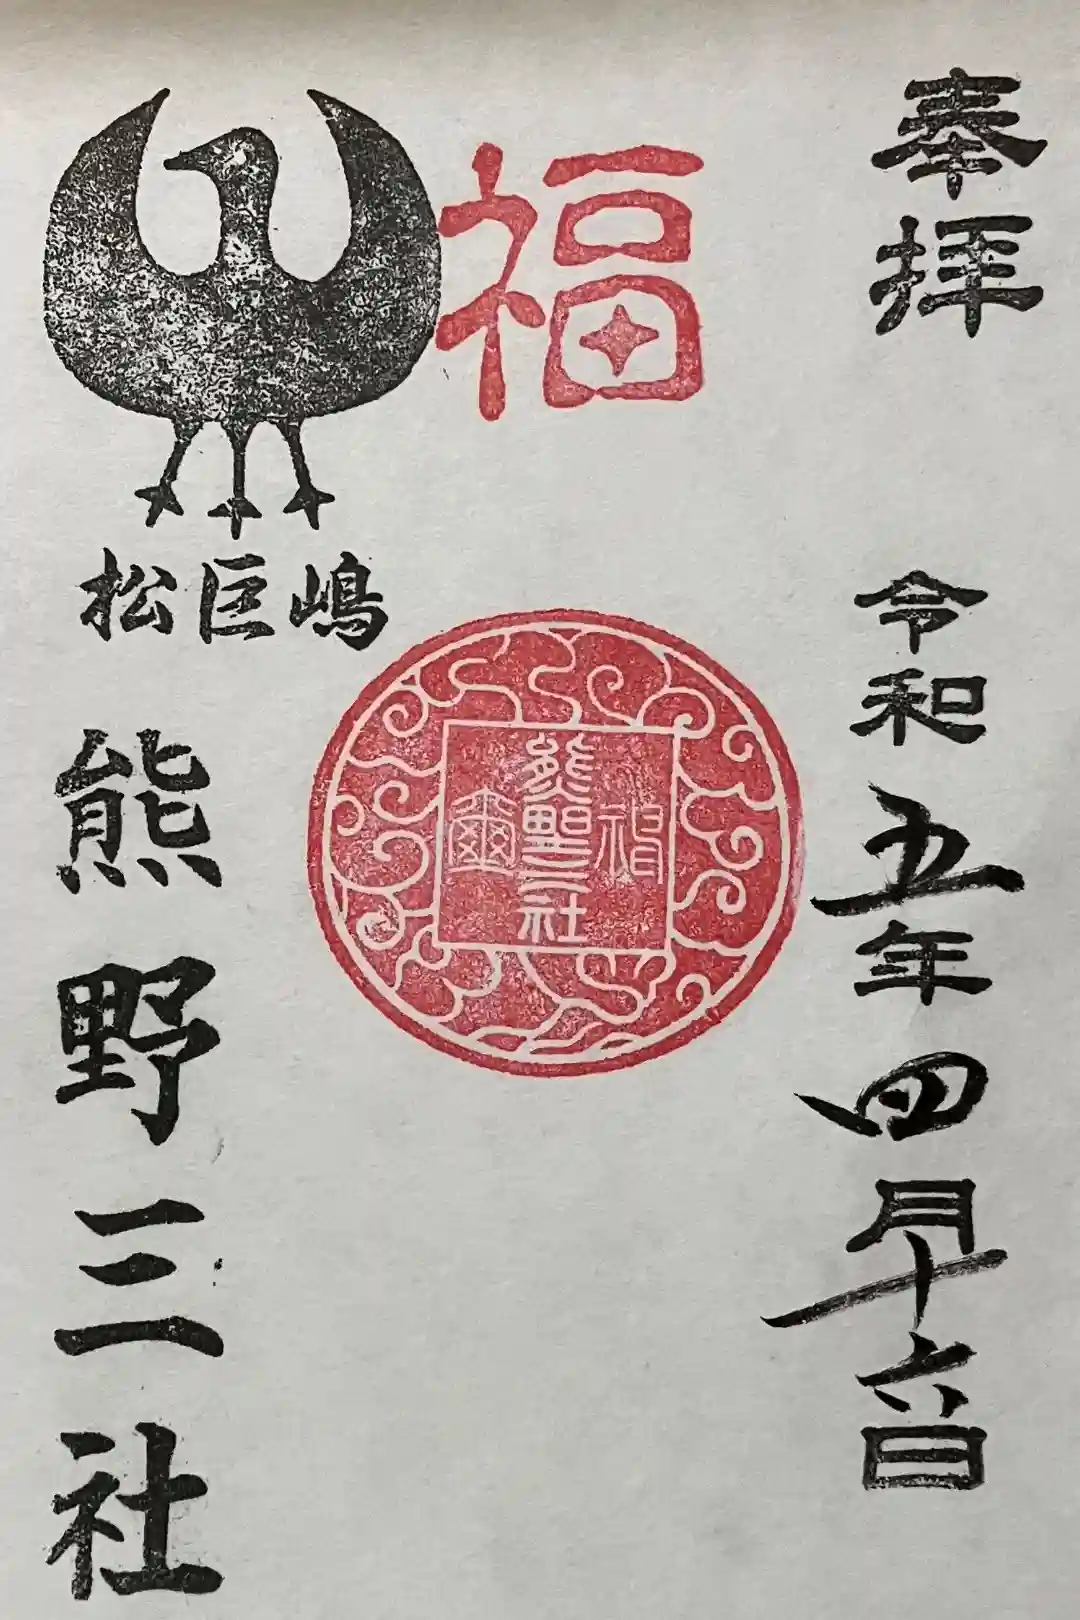 奉拝
令和五年四月十六日
福
熊野三社
松巨嶋
熊野三社